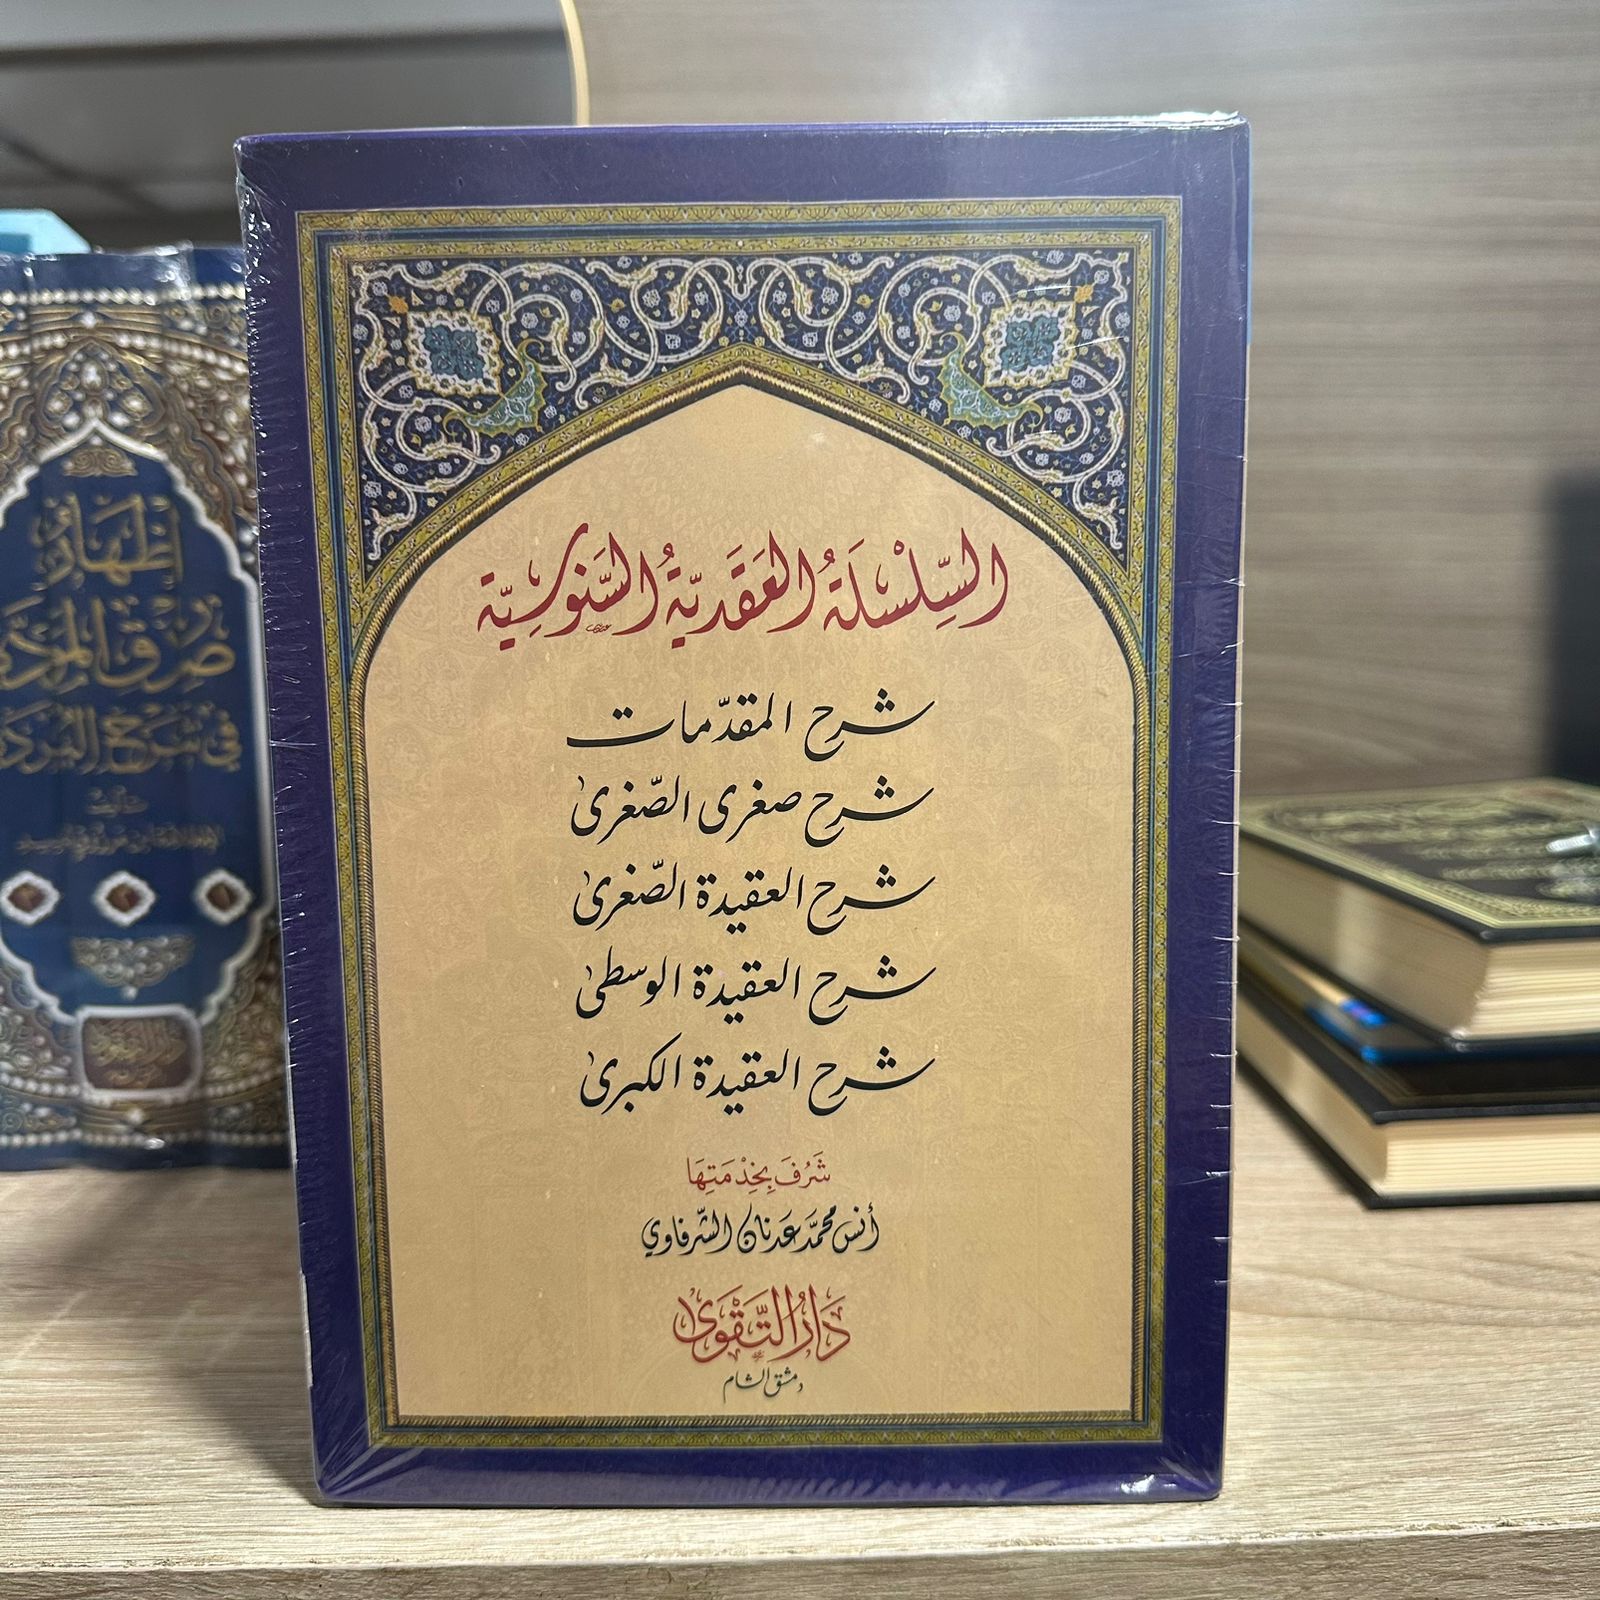 السِّلْسِلَةُ العَقَدِيَّةُ السَّنُوسِيَّة
شرح المقدّمات
شرح صغرى الصّغرى
شرح العقيدة الصّغرى
شرح العقيدة الوسطى
شرح العقيدة الكبرى
شَرُفَ بِخِدْمَتِهَا
أنس محمّد عَدنان الشّرفاوي
دَارُ التَّقْوَى
دمشق الشام
إظهار
صدق المود
في شرح البرد
تأليف